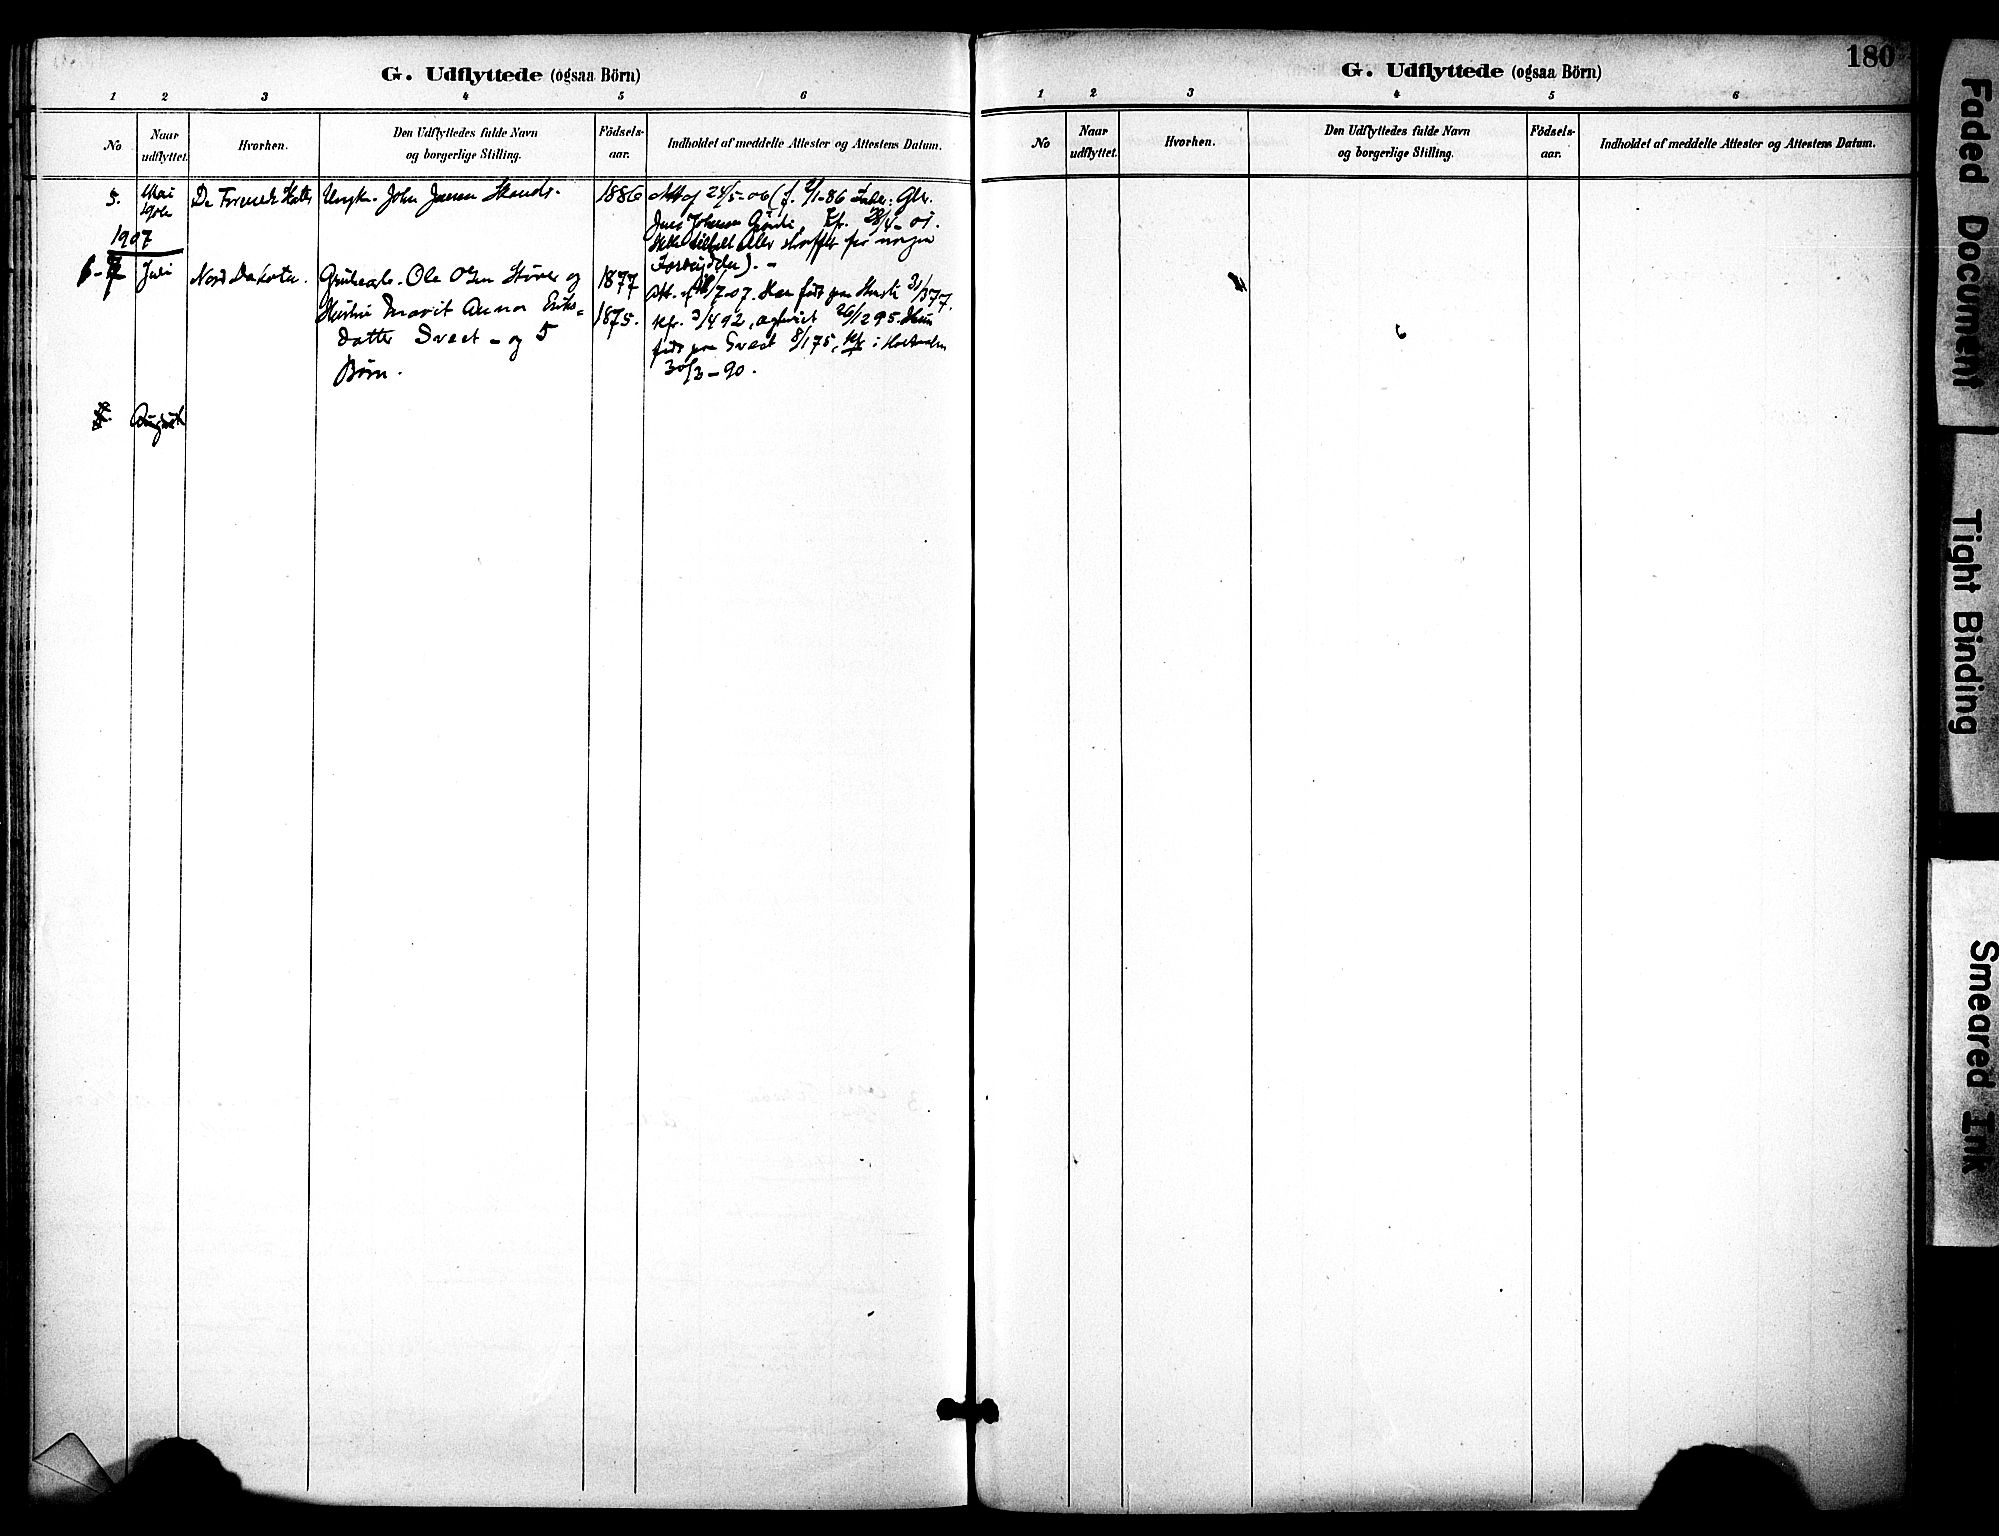 180
G. Udflyttede (ogsaa Börn)
1 2 3 4 5 6
No
Naar udflyttet.
Hvorhen.
Den Udflyttedes fulde Navn og borgerlige Stilling.
Födsels-aar.
Indholdet af meddelte Attester og Attestens Datum.
5. Mai 1906 De Forenede Stater Ungk. John Jensen Strand. 1886
Att af 24/5-06 (f. 2/1-86
Jens Johnsen
Kfr. 28/4-01.
eller for nogen
Forbrydelse). -
1907
6-7 Juli Nord Dakota. Ole Olsen Støver og 1877
Hustru Marit Anna Eriks= 1875.
datter Svect - og 5
Børn.
Att. af /7-07. Han født paa 31/3 77.
Kfr. 3/4 92, ogtviet 26/12 95. Hun
født paa Svect 8/1 75, Kfr i
30/3-90.
August
G. Udflyttede (ogsaa Börn)
1 2 3 4 5 6
No
Naar udflyttet.
Hvorhen.
Den Udflyttedes fulde Navn og borgerlige Stilling.
Födsels-aar.
Indholdet af meddelte Attester og Attestens Datum.
Faded Document
Tight Binding
Smeared Ink